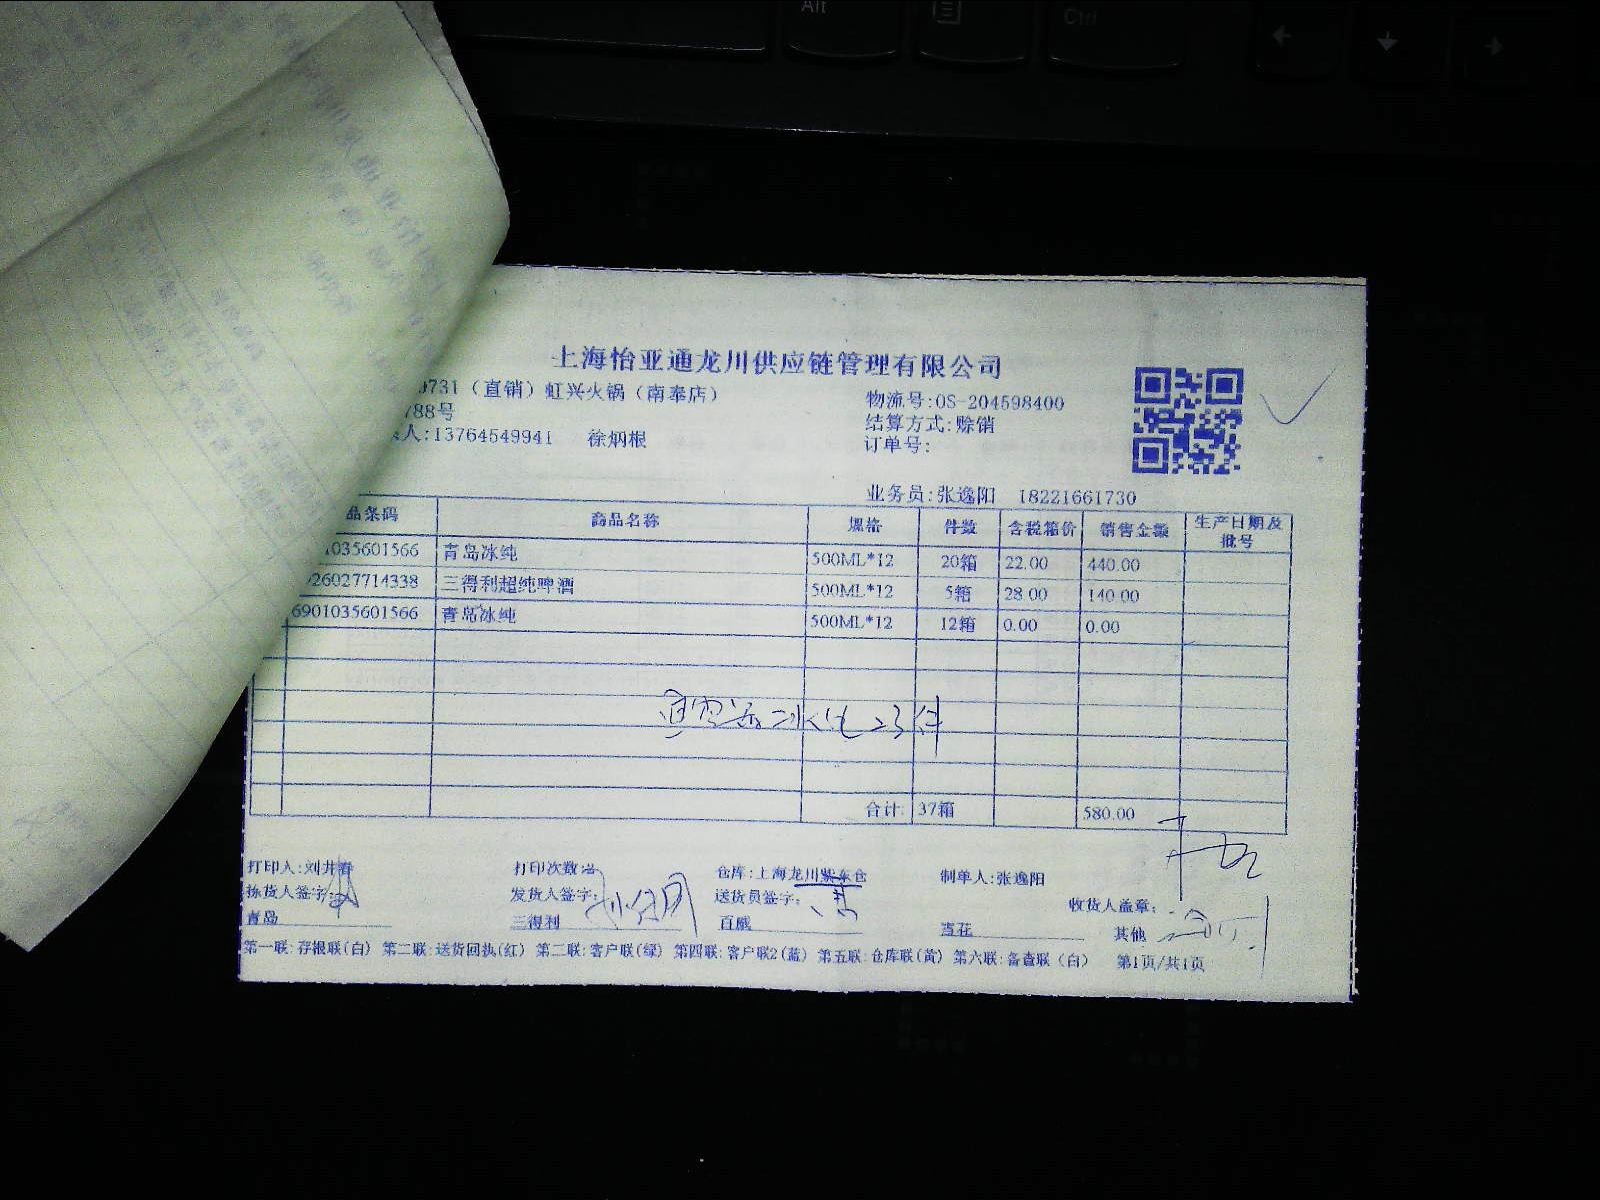 Alt
Ctrl
上海怡亚通龙川供应链管理有限公司
9731（直销）虹兴火锅（南奉店）
788号
人:13764549941 徐炳根
物流号:OS-204598400
结算方式:赊销
订单号:
业务员:张逸阳 18221661730
品条码 商品名称 规格 件数 含税箱价 销售金额 生产日期及批号
1035601566 青岛冰纯 500ML*12 20箱 22.00 440.00
26027714338 三得利超纯啤酒 500ML*12 5箱 28.00 140.00
6901035601566 青岛冰纯 500ML*12 12箱 0.00 0.00
合计: 37箱 580.00
打印人:刘井春 打印次数: 仓库:上海龙川紫东仓 制单人:张逸阳
拣货人签字: 发货人签字: 送货员签字: 收货人盖章:
青岛 三得利 百威 雪花 其他
第一联:存根联(白) 第二联:送货回执(红) 第二联:客户联(绿) 第四联:客户联2(蓝) 第五联:仓库联(黄) 第六联:备查联（白） 第1页/共1页